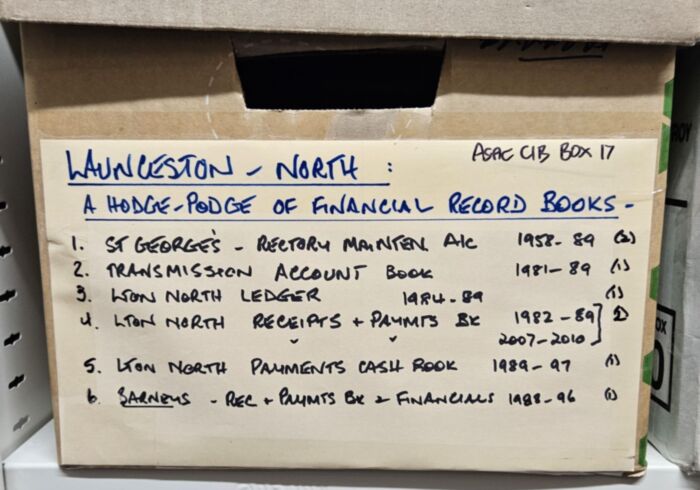 ASAC CIB BOX 17
LAUNCESTON - NORTH :
A HODGE-PODGE OF FINANCIAL RECORD BOOKS -
1. ST GEORGE'S - RECTORY MAINTEN. A/C 1958-89 (2)
2. TRANSMISSION ACCOUNT BOOK 1981-89 (1)
3. LTON NORTH LEDGER 1984-89 (1)
4. LTON NORTH RECEIPTS + PAYMTS BK 1982-89
2007-2010
5. LTON NORTH PAYMENTS CASH BOOK 1989-97 (1)
6. BARNEYS - REC + PAYMTS BK & FINANCIALS 1988-96 (1)